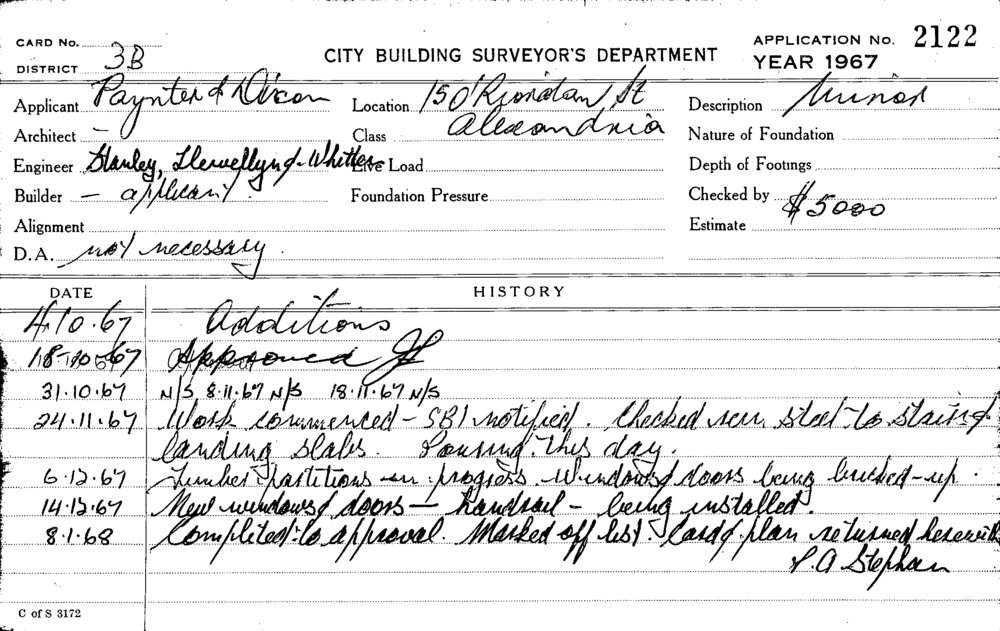 CARD No.
DISTRICT 3B
CITY BUILDING SURVEYOR'S DEPARTMENT
APPLICATION No. 2122
YEAR 1967
Applicant Paynter & Dixon
Location 150 Riordan St
Alexandria
Description Minor
Architect —
Class
Nature of Foundation
Engineer Stanley, Llewellyn & Whitter
Live Load
Depth of Footings
Builder — applicant.
Foundation Pressure
Checked by
Alignment
Estimate $5000
D.A. not necessary.
DATE HISTORY
4.10.67 Additions
18-10-67 Approved
31.10.67 N/S 8.11.67 N/S 18.11.67 N/S
24.11.67 Work commenced - SBI notified. Checked steel to stairs &
landing slabs. Pouring this day.
6.12.67 Timber partitions in progress. Windows & doors being bricked-up.
14.12.67 New windows & doors - handrail - being installed.
8.1.68 Completed to approval. Marked off list. Card & plan returned herewith
P.A Stephan
C of S 3172